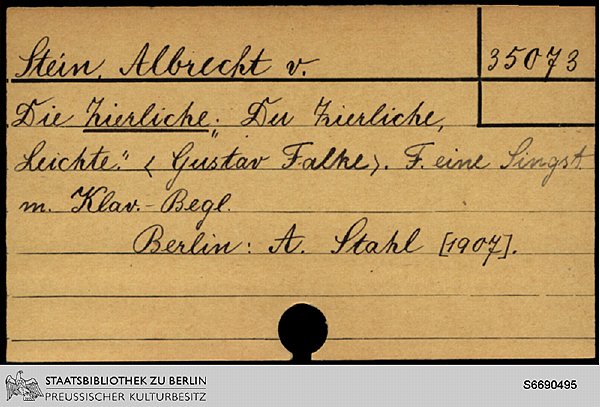 Stein, Albrecht v. 35073
Die Zierliche. "Du Zierliche,
Leichte." < Gustav Falke>. F. eine Singst.
m. Klav.-Begl.
Berlin: A. Stahl [1907].
STAATSBIBLIOTHEK ZU BERLIN
PREUSSISCHER KULTURBESITZ
S6690495